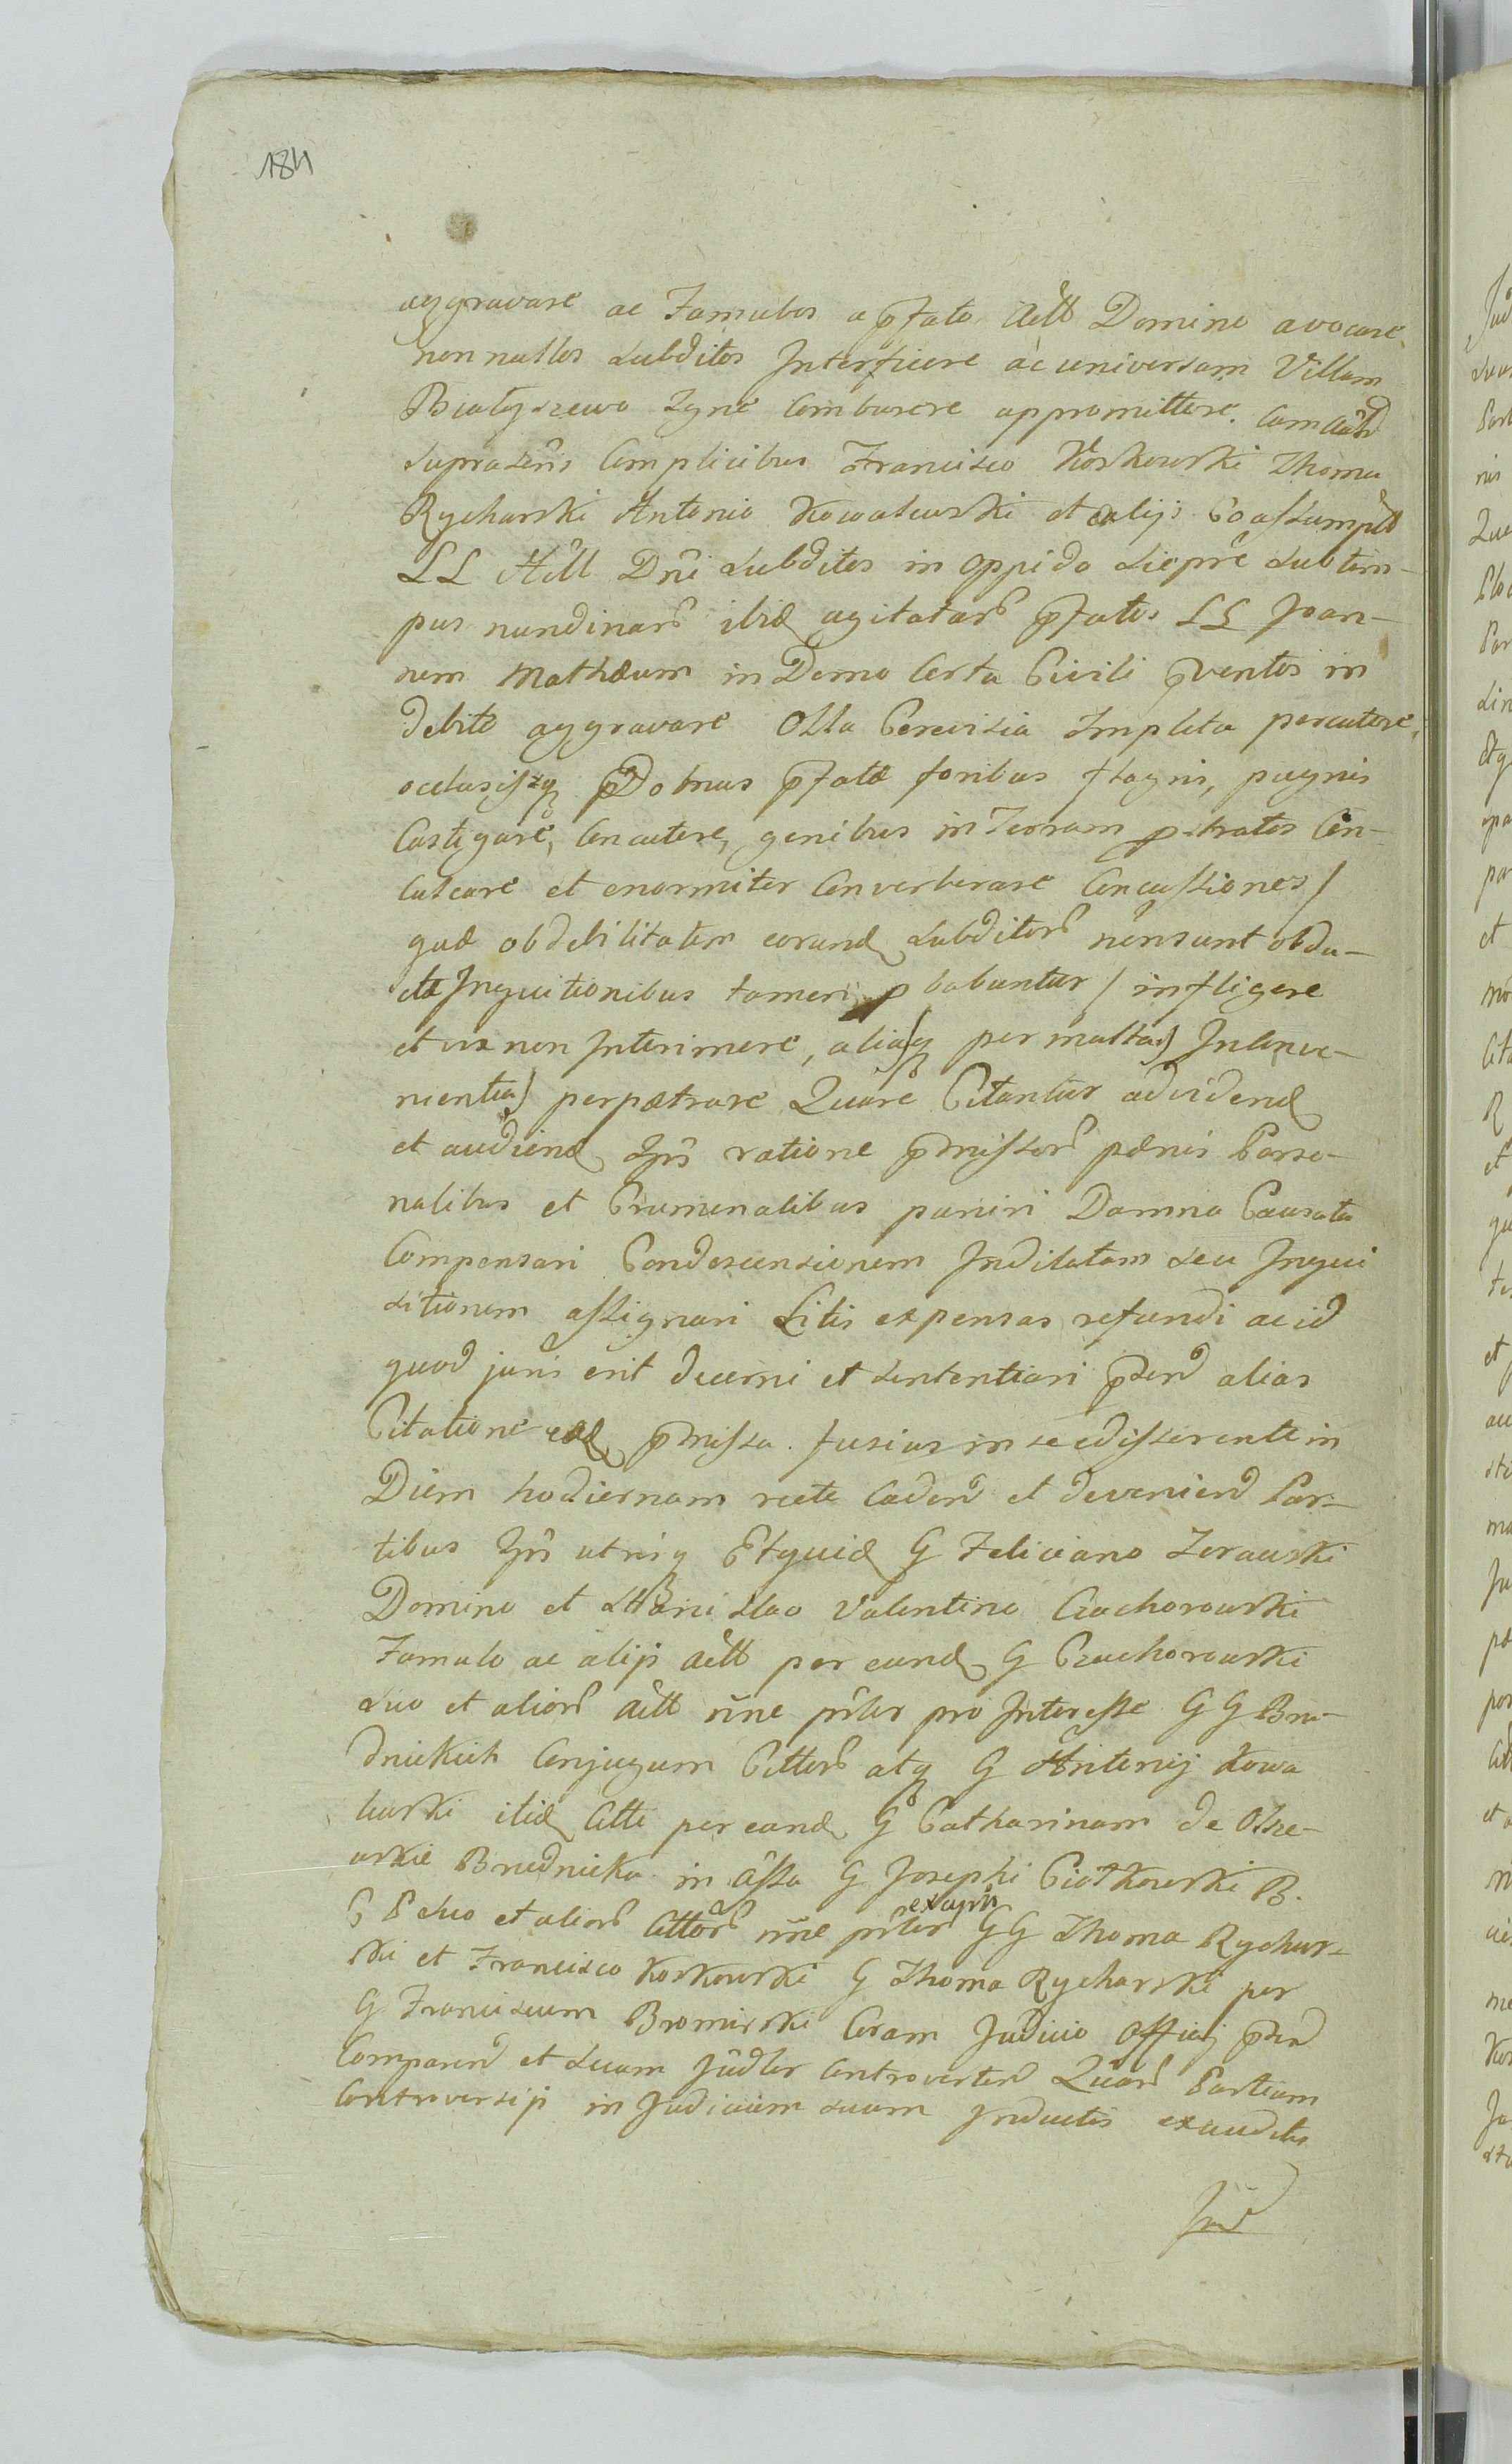 184
aggravare ac Famulos a pfato Actt Domino avocare
nonnullos Subditos Interficere ac universam Villam
Białyszewo Igne Comburere appromittere. Cum
suprascris Complicibus Francisco Koskowski Thoma
Rycharski Antonio Kowalewski et alijs Coassumptt
LL Actt Dni Subditos in oppido Siepre sub tem-
pus nundinarũ ibid agitatarũ pfatos LL Joan-
nem Mathæum in Domo Certa Civili pventos in
debite aggravare Olla Cerevisia Impleta percutere,
oclusisq Domus pfatæ foribus flagris, pugnis
Castigare, Concutere, genibus in Terram pstratos Con-
culcare et enormiter Converberare Concussiones /
quæ ob debilitatem eorund Subditorũ non sunt obdu-
ctæ Inquitionibus tamen pbabuntur / infligere
et vix non Interimere, aliaq per multa Inconve-
nientia perpætrare Quare Citantur ad vidend
et audiend Iprs ratione pmissorũ pænis Perso-
nalibus et Criminalibus puniri Damna Causata
Compensari Condescensionem Indilatam seu Inqui
sitionem assignari Litis expensas refundi ac id
quod juris erit decerni et sententiari pder alias
Citatione ead pmissa fusius in se edisserente in
Diem hodiernam recte Caden et devenien Par-
tibus Iprs utrisq Et quid G Feliciano Zerawski
Domino et Stanislao Valentino Czachorowski
Famulo ac alijs Actt per eund G Czachorowski
suo et aliorũ Actt nne prlir pro Interesse GG Bru-
dnickich Conjugum Cittorũ atq G Antonij Kowa
lewski itid Citti per eand G Catharinam de Olsze-
wskie Brudnicka in Assa G Josephi Piotkowski B.
G P suo et aliorũ Cittorũ nne prlir exceptis GG Thoma Rychar-
ski et Francisco Koskowski G Thoma Rycharski per
G Franciscum Bromirski Coram Judicio Officij pder
Comparen et suam Judlr Controverten Quarũ Partium
Controversijs in Judicium suum Inductis exauditis
Jud